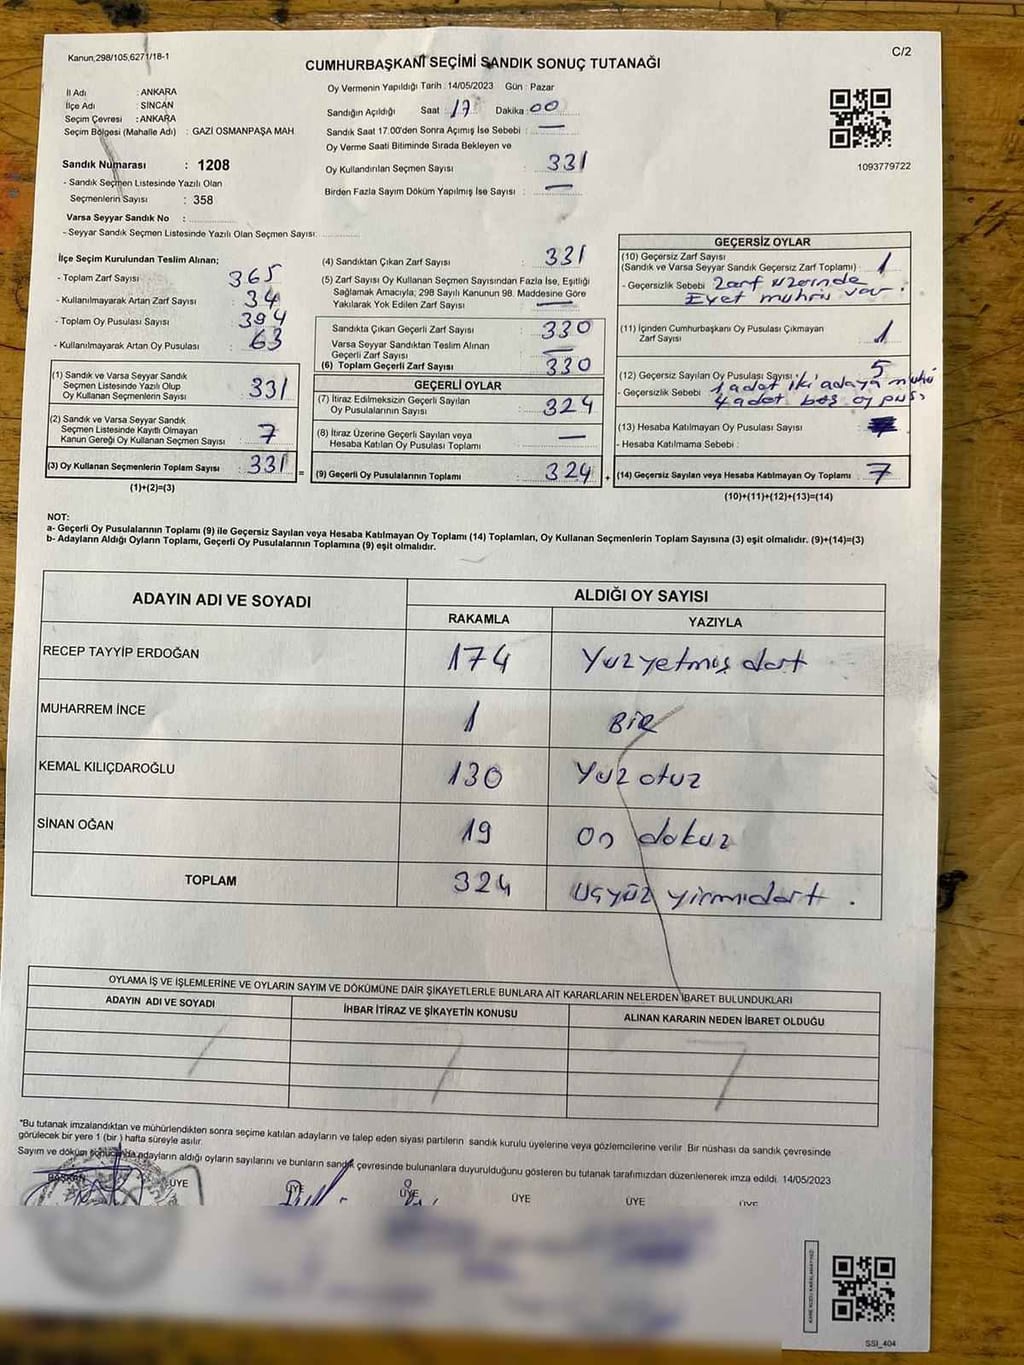 Kanun,298/105,6271/18-1
C/2
CUMHURBAŞKANI SEÇİMİ SANDIK SONUÇ TUTANAĞI
İl Adı : ANKARA
İlçe Adı : SİNCAN
Seçim Çevresi : ANKARA
Seçim Bölgesi (Mahalle Adı) : GAZİ OSMANPAŞA MAH
Sandık Numarası : 1208
- Sandık Seçmen Listesinde Yazılı Olan
Seçmenlerin Sayısı : 358
Varsa Seyyar Sandık No :
- Seyyar Sandık Seçmen Listesinde Yazılı Olan Seçmen Sayısı:
Oy Vermenin Yapıldığı Tarih : 14/05/2023 Gün : Pazar
Sandığın Açıldığı Saat : 17 Dakika : 00
Sandık Saat 17:00'den Sonra Açımış İse Sebebi : —
Oy Verme Saati Bitiminde Sırada Bekleyen ve
Oy Kullandırılan Seçmen Sayısı : 331
Birden Fazla Sayım Döküm Yapılmış İse Sayısı : —
1093779722
İlçe Seçim Kurulundan Teslim Alınan;
- Toplam Zarf Sayısı : 365
- Kullanılmayarak Artan Zarf Sayısı : 34
- Toplam Oy Pusulası Sayısı : 394
- Kullanılmayarak Artan Oy Pusulası : 63
(1) Sandık ve Varsa Seyyar Sandık
Seçmen Listesinde Yazılı Olup
Oy Kullanan Seçmenlerin Sayısı : 331
(2) Sandık ve Varsa Seyyar Sandık
Seçmen Listesinde Kayıtlı Olmayan
Kanun Gereği Oy Kullanan Seçmen Sayısı : 7
(3) Oy Kullanan Seçmenlerin Toplam Sayısı : 331
(1)+(2)=(3)
(4) Sandıktan Çıkan Zarf Sayısı : 331
(5) Zarf Sayısı Oy Kullanan Seçmen Sayısından Fazla İse, Eşitliği
Sağlamak Amacıyla; 298 Sayılı Kanunun 98. Maddesine Göre
Yakılarak Yok Edilen Zarf Sayısı : —
Sandıkta Çıkan Geçerli Zarf Sayısı : 330
Varsa Seyyar Sandıktan Teslim Alınan
Geçerli Zarf Sayısı : —
(6) Toplam Geçerli Zarf Sayısı : 330
GEÇERLİ OYLAR
(7) İtiraz Edilmeksizin Geçerli Sayılan
Oy Pusulalarının Sayısı : 324
(8) İtiraz Üzerine Geçerli Sayılan veya
Hesaba Katılan Oy Pusulası Toplamı : —
(9) Geçerli Oy Pusulalarının Toplamı : 324
GEÇERSİZ OYLAR
(10) Geçersiz Zarf Sayısı
(Sandık ve Varsa Seyyar Sandık Geçersiz Zarf Toplamı) : 1
- Geçersizlik Sebebi : Zarf üzerinde
Evet muhru var.
(11) İçinden Cumhurbaşkanı Oy Pusulası Çıkmayan
Zarf Sayısı : 1
(12) Geçersiz Sayılan Oy Pusulası Sayısı : 5
- Geçersizlik Sebebi : 1 adet iki adaya muhü
4 adet boş oy pus
(13) Hesaba Katılmayan Oy Pusulası Sayısı :
- Hesaba Katılmama Sebebi :
(14) Geçersiz Sayılan veya Hesaba Katılmayan Oy Toplamı : 7
(10)+(11)+(12)+(13)=(14)
NOT:
a- Geçerli Oy Pusulalarının Toplamı (9) ile Geçersiz Sayılan veya Hesaba Katılmayan Oy Toplamı (14) Toplamları, Oy Kullanan Seçmenlerin Toplam Sayısına (3) eşit olmalıdır. (9)+(14)=(3)
b- Adayların Aldığı Oyların Toplamı, Geçerli Oy Pusulalarının Toplamına (9) eşit olmalıdır.
ADAYIN ADI VE SOYADI
ALDIĞI OY SAYISI
RAKAMLA YAZIYLA
RECEP TAYYİP ERDOĞAN 174 Yüzyetmiş dört
MUHARREM İNCE 1 BİR
KEMAL KILIÇDAROĞLU 130 Yüz otuz
SİNAN OĞAN 19 on dokuz
TOPLAM 324 üçyüz yirmidört.
OYLAMA İŞ VE İŞLEMLERİNE VE OYLARIN SAYIM VE DÖKÜMÜNE DAİR ŞİKAYETLERLE BUNLARA AİT KARARLARIN NELERDEN İBARET BULUNDUKLARI
ADAYIN ADI VE SOYADI
İHBAR İTİRAZ VE ŞİKAYETİN KONUSU
ALINAN KARARIN NEDEN İBARET OLDUĞU
*Bu tutanak imzalandıktan ve mühürlendikten sonra seçime katılan adayların ve talep eden siyasi partilerin sandık kurulu üyelerine veya gözlemcilerine verilir. Bir nüshası da sandık çevresinde
görülecek bir yere 1 (bir) hafta süreyle asılır.
Sayım ve döküm sonucunda adayların aldığı oyların sayılarını ve bunların sandık çevresinde bulunanlara duyurulduğunu gösteren bu tutanak tarafımızdan düzenlenerek imza edildi. 14/05/2023
BAŞKAN ÜYE ÜYE ÜYE ÜYE ÜYE ÜYE
SSI_404